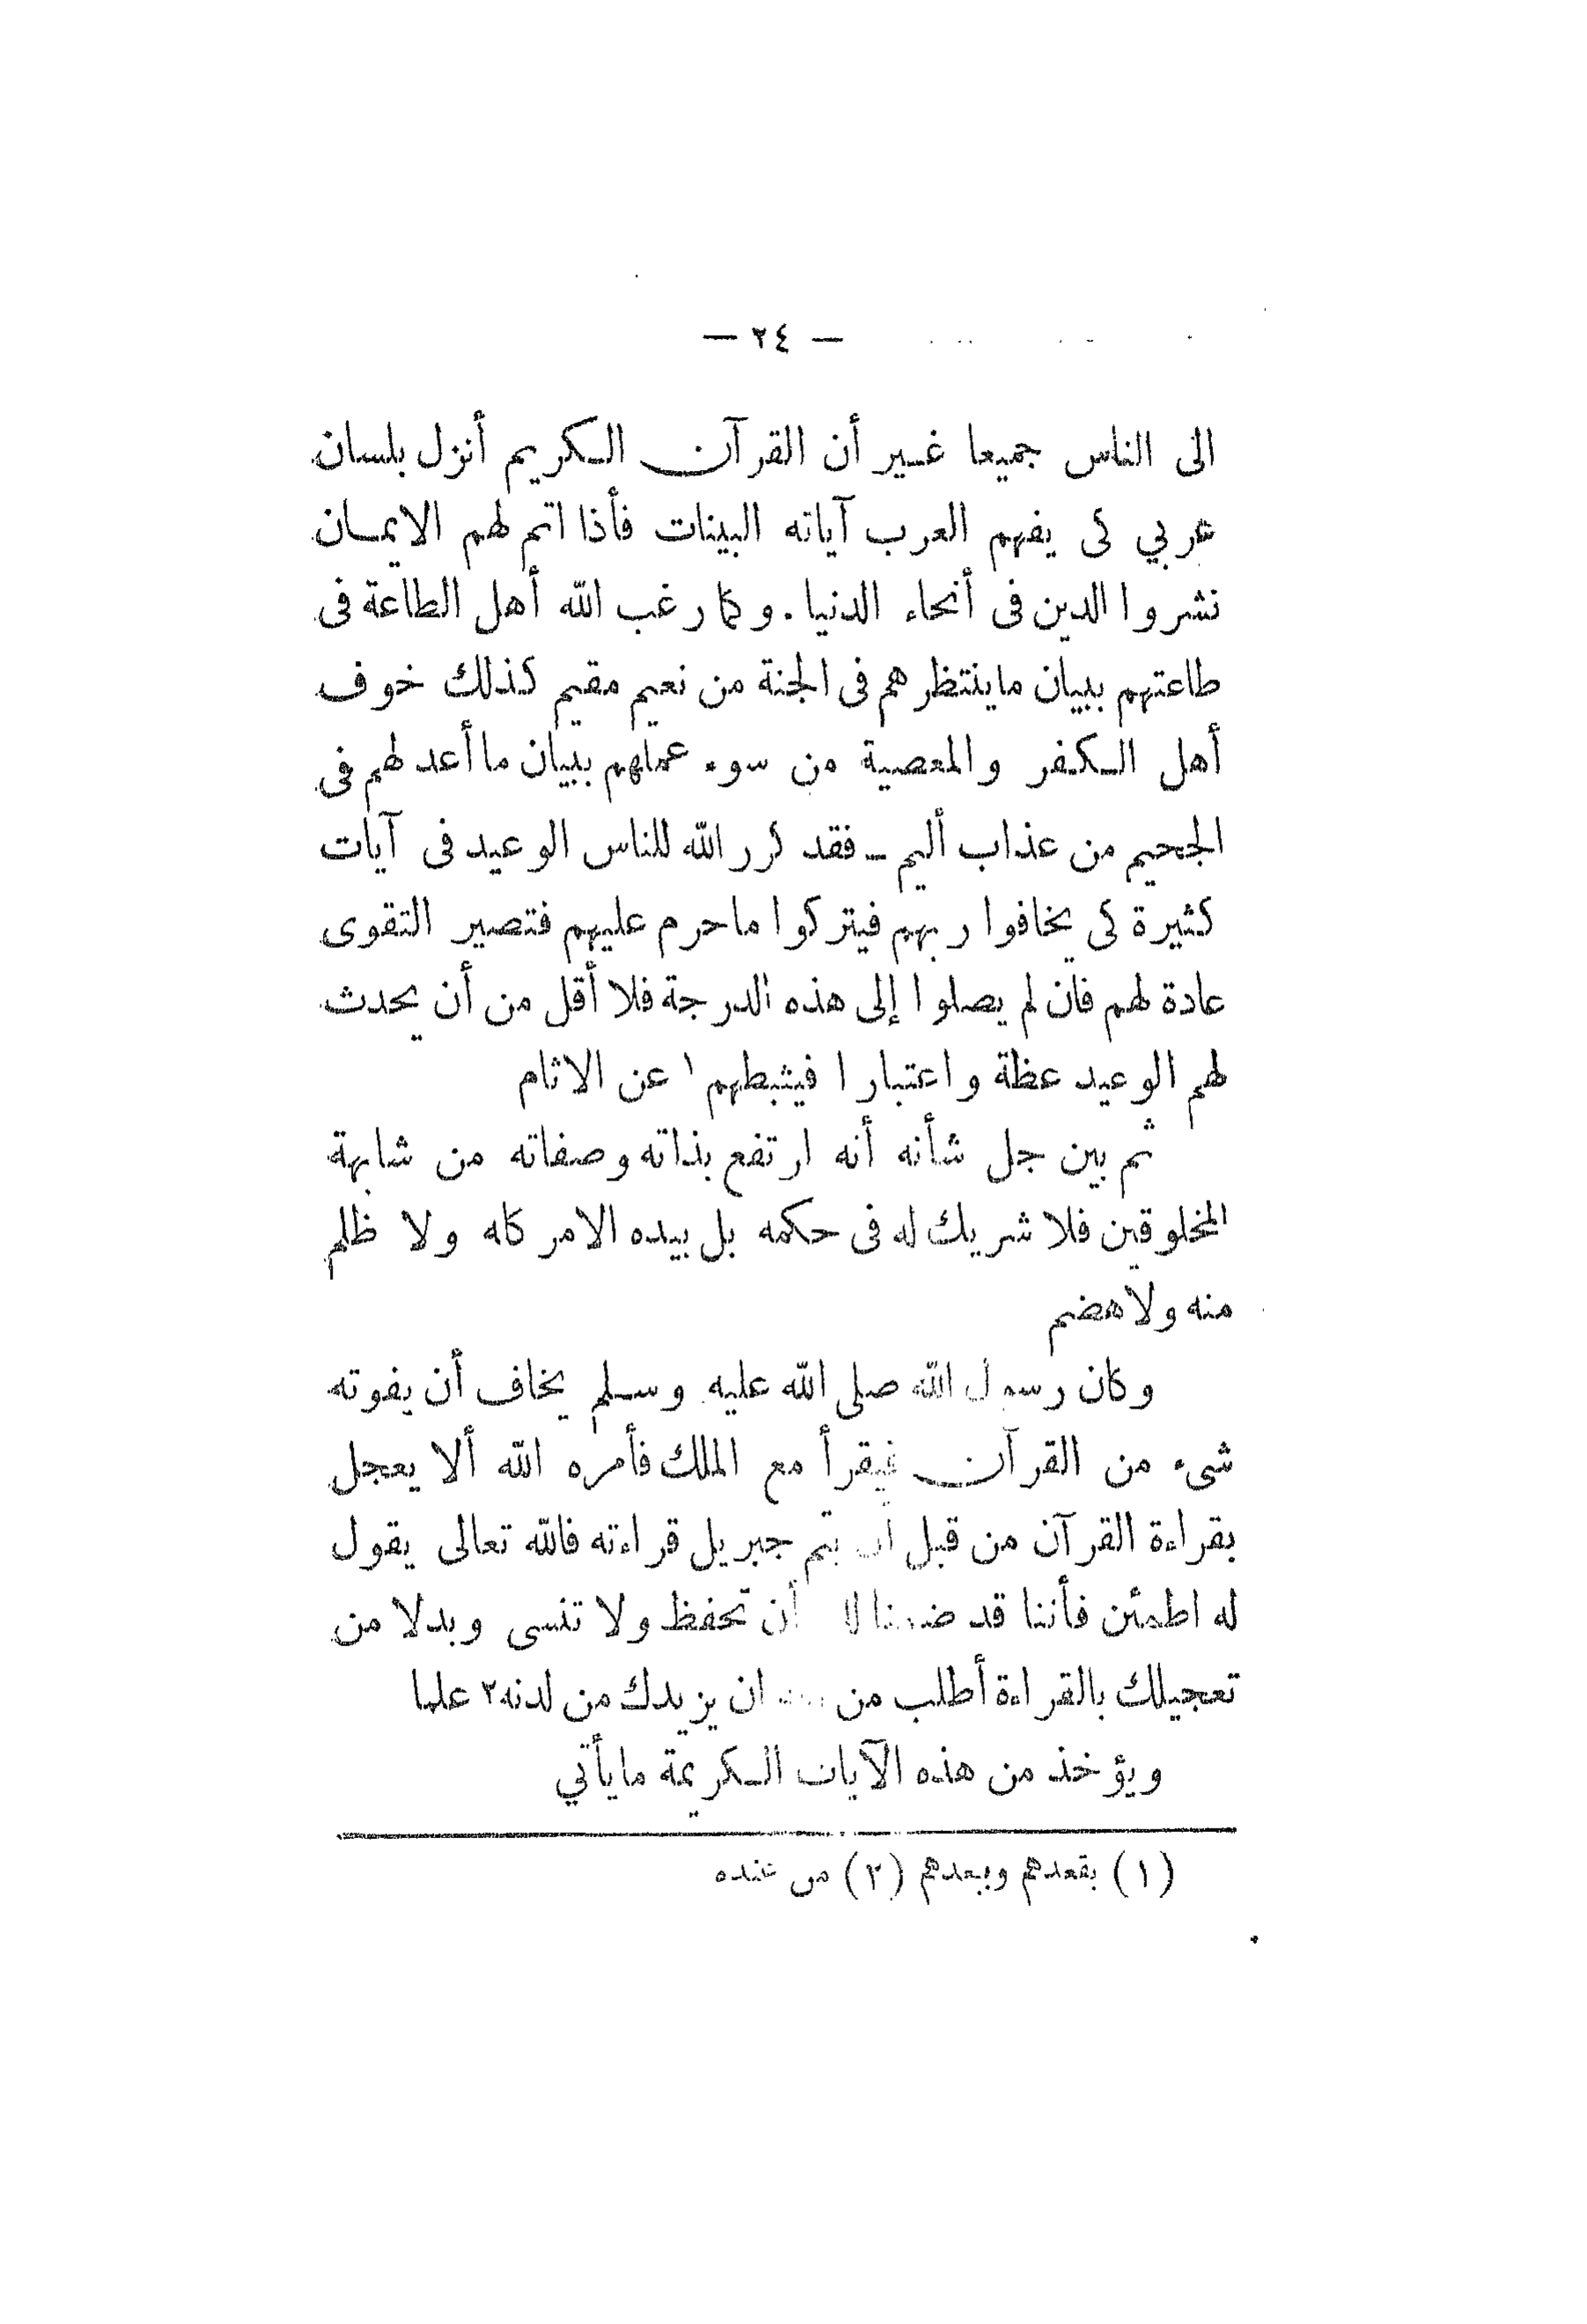 — ٢٤ —
الى الناس جميعا غير أن القرآن الكريم أنزل بلسان
عربي كى يفهم العرب آياته البينات فأذا اتم لهم الايمان
نشروا الدين فى أنحاء الدنيا . وكما رغب الله أهل الطاعة فى
طاعتهم ببيان ماينتظرهم فى الجنة من نعيم مقيم كذلك خوف
أهل الكفر والمعصية من سوء عملهم ببيان ما أعد لهم فى
الجحيم من عذاب أليم ـ فقد كرر الله للناس الوعيد فى آيات
كثيرة كى يخافوا ربهم فيتركوا ماحرم عليهم فتصير التقوى
عادة لهم فان لم يصلوا إلى هذه الدرجة فلا أقل من أن يحدث
لهم الوعيد عظة واعتبارا فيثبطهم ١ عن الاثام
ثم بين جل شأنه أنه ارتفع بذاته وصفاته من شابهة
المخلوقين فلا شريك له فى حكمه بل بيده الامر كله ولا ظلم
منه ولاهضم
وكان رسول الله صلى الله عليه وسلم يخاف أن يفوته
شىء من القرآن فيقرأ مع الملك فأمره الله ألا يعجل
بقراءة القرآن من قبل أن يتم جبريل قراءته فالله تعالى يقول
له اطمئن فأننا قد ضمنا أن تحفظ ولا تنسى وبدلا من
تعجيلك بالقراءة أطلب من ان يزيدك من لدنه ٢ علما
ويؤخذ من هذه الآيات الكريمة مايأتي
(١) يقعدهم ويبعدهم (٢) من عنده